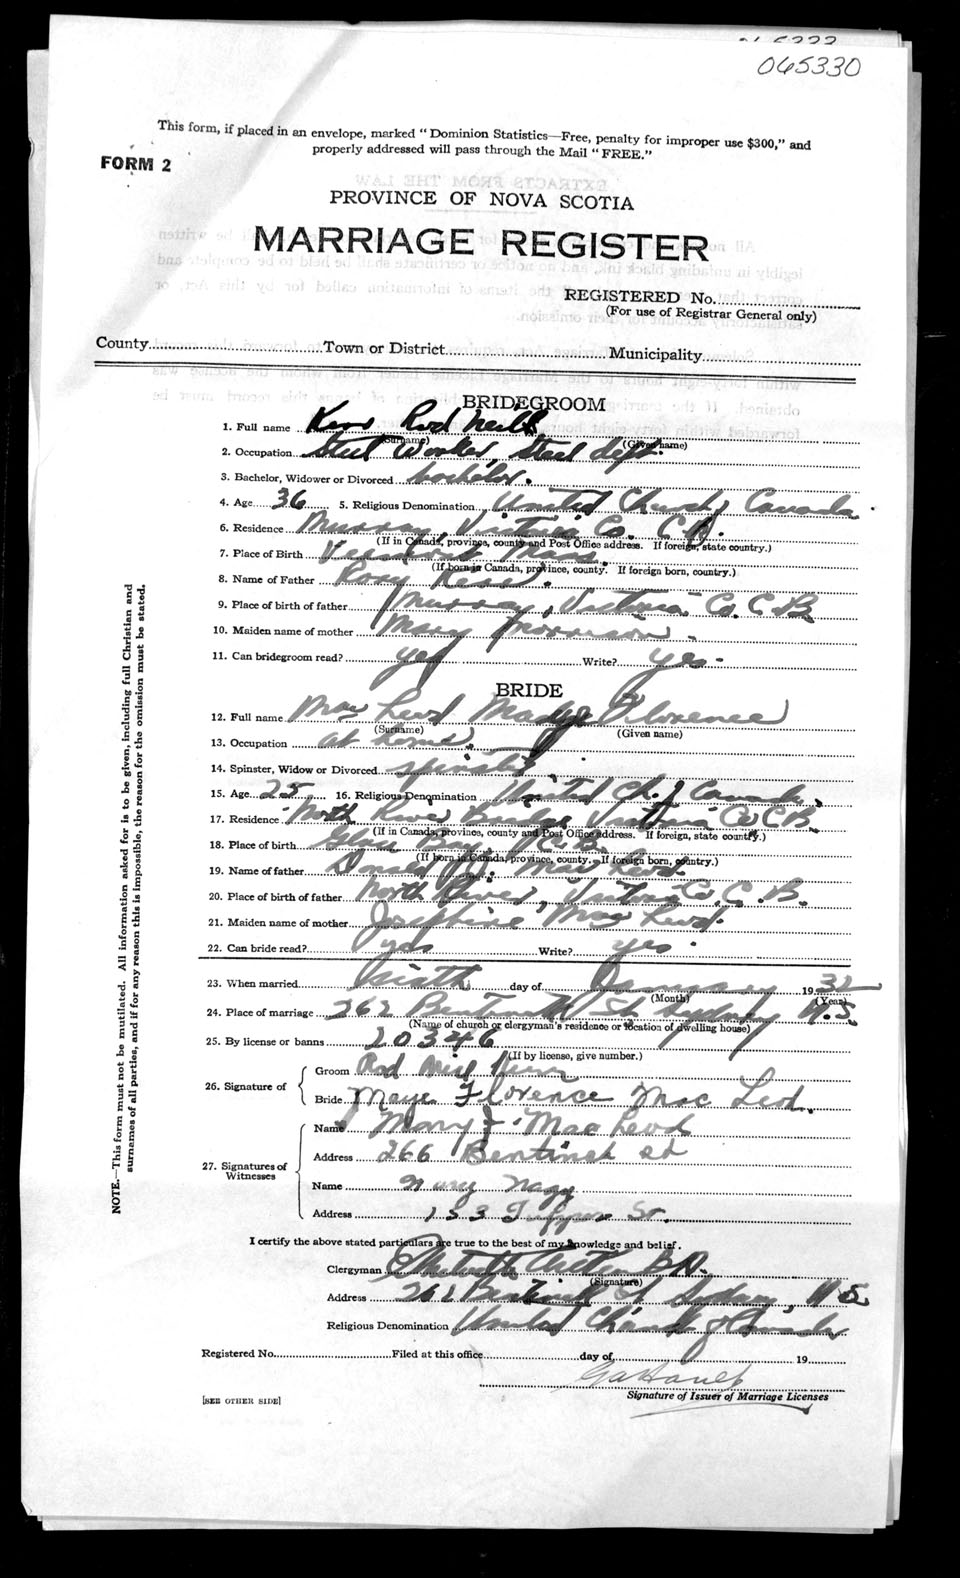 065330
This form, if placed in an envelope, marked "Dominion Statistics—Free, penalty for improper use $300," and
properly addressed will pass through the Mail "FREE."
FORM 2
PROVINCE OF NOVA SCOTIA
MARRIAGE REGISTER
REGISTERED No.
(For use of Registrar General only)
County Town or District Municipality
BRIDEGROOM
1. Full name Kerr Rod Neil
(Surname) (Given name)
2. Occupation Steel Worker, Steel dept.
3. Bachelor, Widower or Divorced bachelor.
4. Age 36 5. Religious Denomination United Church of Canada
6. Residence Murray, Victoria Co. C.B.
(If in Canada, province, county and Post Office address. If foreign, state country.)
7. Place of Birth Mass.
(If born in Canada, province, county. If foreign born, country.)
8. Name of Father Rory Kerr.
9. Place of birth of father Murray, Victoria Co. C.B.
10. Maiden name of mother Mary Morrison.
11. Can bridegroom read? yes Write? yes.
BRIDE
12. Full name Mac Leod Florence
(Surname) (Given name)
13. Occupation at home.
14. Spinster, Widow or Divorced spinster
15. Age 25 16. Religious Denomination United Ch. of Canada.
17. Residence North River Bridge Victoria Co C.B.
(If in Canada, province, county and Post Office address. If foreign, state country.)
18. Place of birth Glace Bay, C.B.
(If born in Canada, province, county. If foreign born, country.)
19. Name of father Donald Mac Leod.
20. Place of birth of father North River, Victoria Co. C.B.
21. Maiden name of mother Josephine Mac Leod.
22. Can bride read? yes Write? yes.
23. When married sixth day of January 1932
(Month) (Year)
24. Place of marriage 262 Bentinck St Sydney N.S.
(Name of church or clergyman's residence or location of dwelling house)
25. By license or banns 20346
(If by license, give number.)
26. Signature of
Groom Rod Neil Kerr
Bride Florence Mac Leod.
27. Signatures of
Witnesses
Name Mary F. MacLeod
Address 266 Bentinck St
Name Mary Nagy
Address 153 Tupper St.
I certify the above stated particulars are true to the best of my knowledge and belief.
Clergyman B.D.
(Signature)
Address 262 Bentinck St Sydney, N.S.
Religious Denomination United Church of Canada
Registered No. Filed at this office day of 19
Signature of Issuer of Marriage Licenses
[SEE OTHER SIDE]
NOTE.—This form must not be mutilated. All information asked for is to be given, including full Christian and
surnames of all parties, and if for any reason this is impossible, the reason for the omission must be stated.